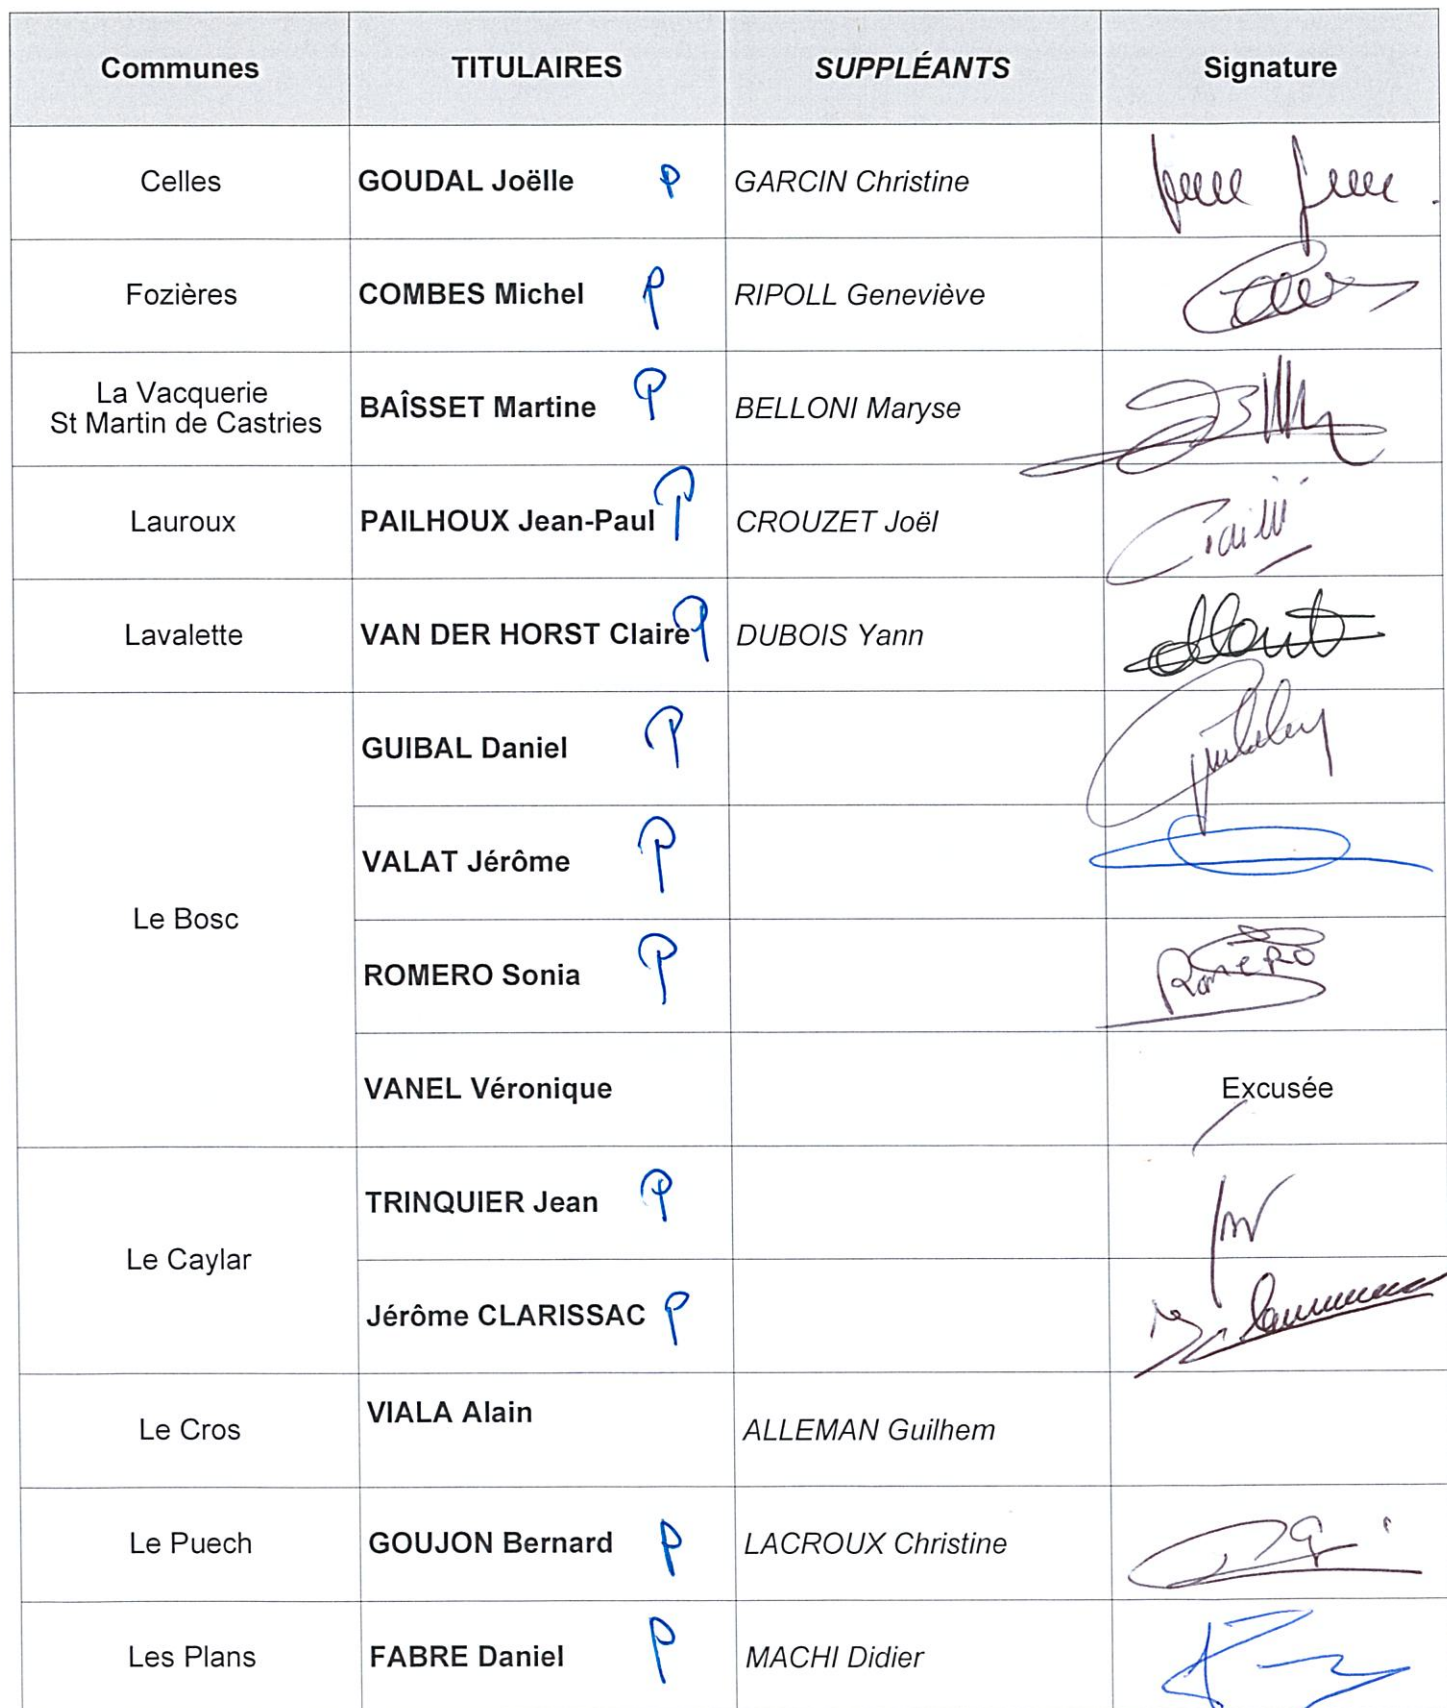 Communes TITULAIRES SUPPLÉANTS Signature
Celles GOUDAL Joëlle P GARCIN Christine
Fozières COMBES Michel P RIPOLL Geneviève
La Vacquerie
St Martin de Castries BAÎSSET Martine P BELLONI Maryse
Lauroux PAILHOUX Jean-Paul P CROUZET Joël
Lavalette VAN DER HORST Claire P DUBOIS Yann
Le Bosc
GUIBAL Daniel P
VALAT Jérôme P
ROMERO Sonia P ROMERO
VANEL Véronique Excusée
Le Caylar
TRINQUIER Jean P
Jérôme CLARISSAC P
Le Cros VIALA Alain ALLEMAN Guilhem
Le Puech GOUJON Bernard P LACROUX Christine
Les Plans FABRE Daniel P MACHI Didier